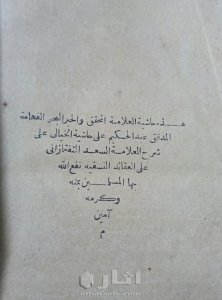 هذه حاشية العلامة المحقق والحبر البحر الفهامة
المدقق عبد الحكيم على حاشية الخيالي على
شرح العلامة السعد التفتازاني
على العقائد النسفية نفع الله
بها المسلمين بمنه
وكرمه
آمين
م